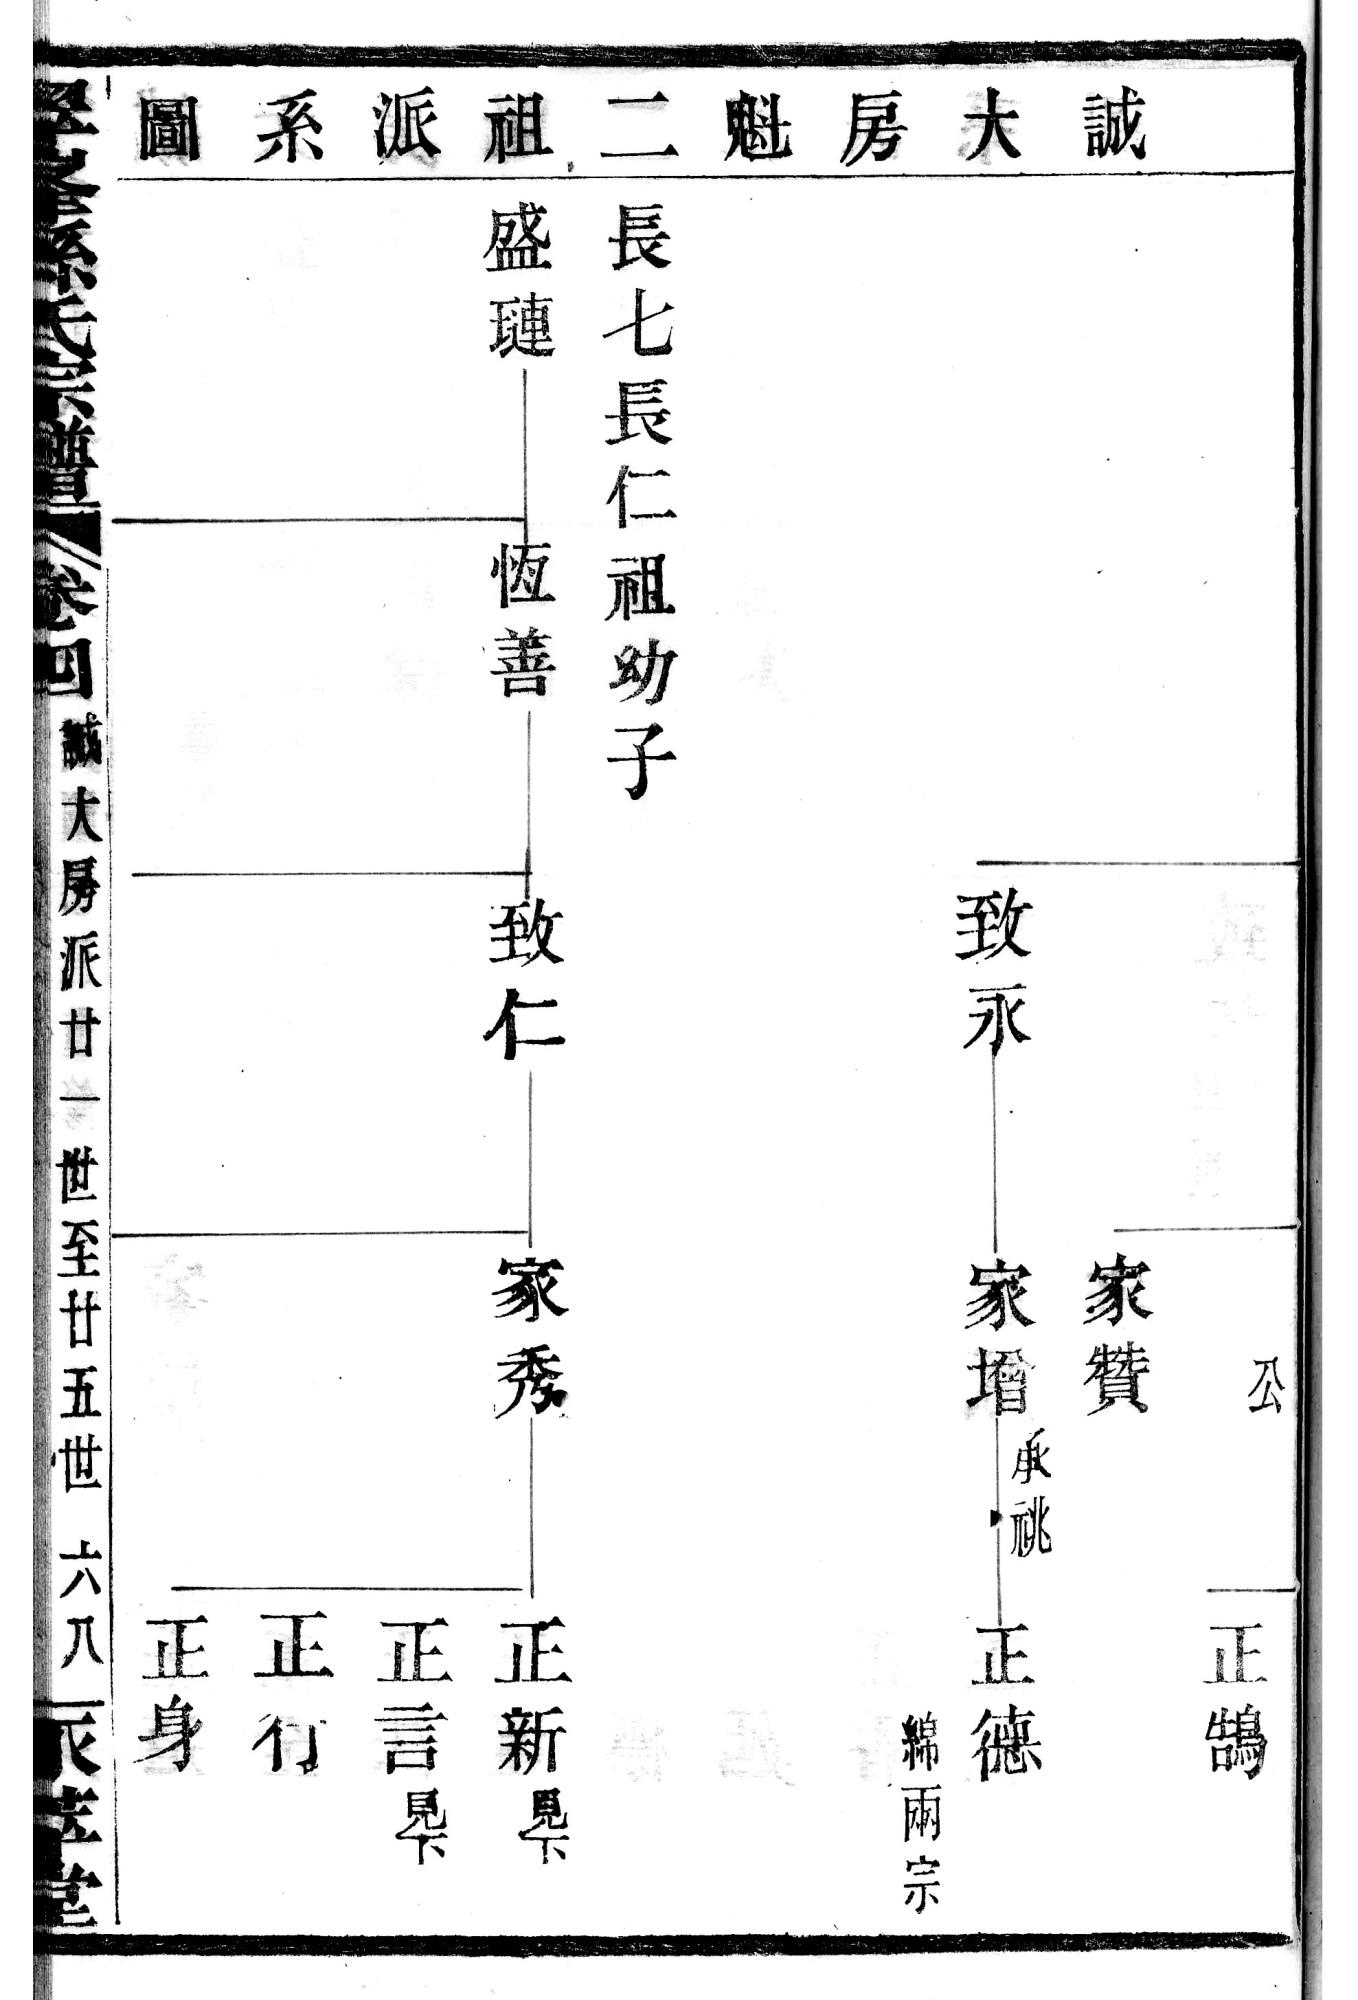 誠大房魁二祖派系圖
公
正鵠
家贊
致永
家增承祧
正德
綿兩宗
長七長仁祖幼子
盛璉
恆善
致仁
家秀
正新見下
正言見下
正行
正身
孫氏宗譜
卷四
誠大房派廿一世至廿五世
六八
堂